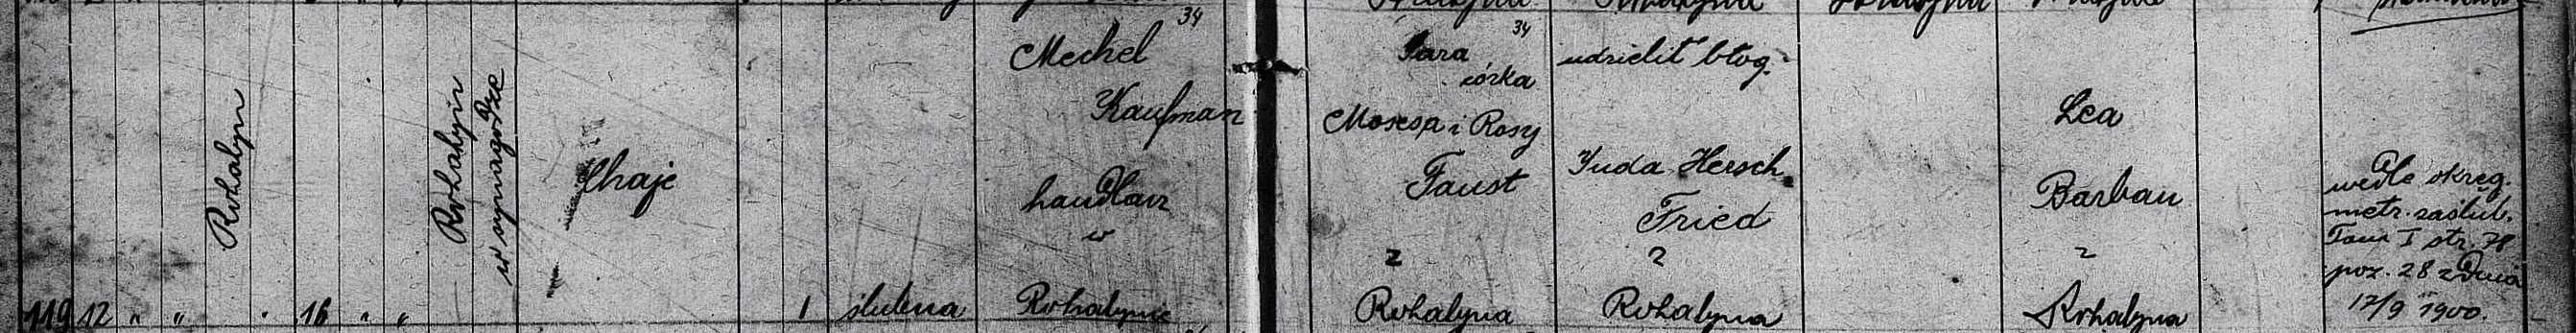 119 12 " " Rohatyn 16 " "
Rohatyn
w synagodze
Chaje
1 ślubna
34
Mechel
Kaufman
handlarz
w
Rohatynie
34
Sara
córka
Mosesa i Rosy
Faust
z
Rohatyna
udzielił błog.
Juda Hersch
Fried
z
Rohatyna
Lea
Barban
z
Rohatyna
wedle okręg.
metr. zaślub.
Tom I str. 78
poz. 28 z dnia
12/9 1900.